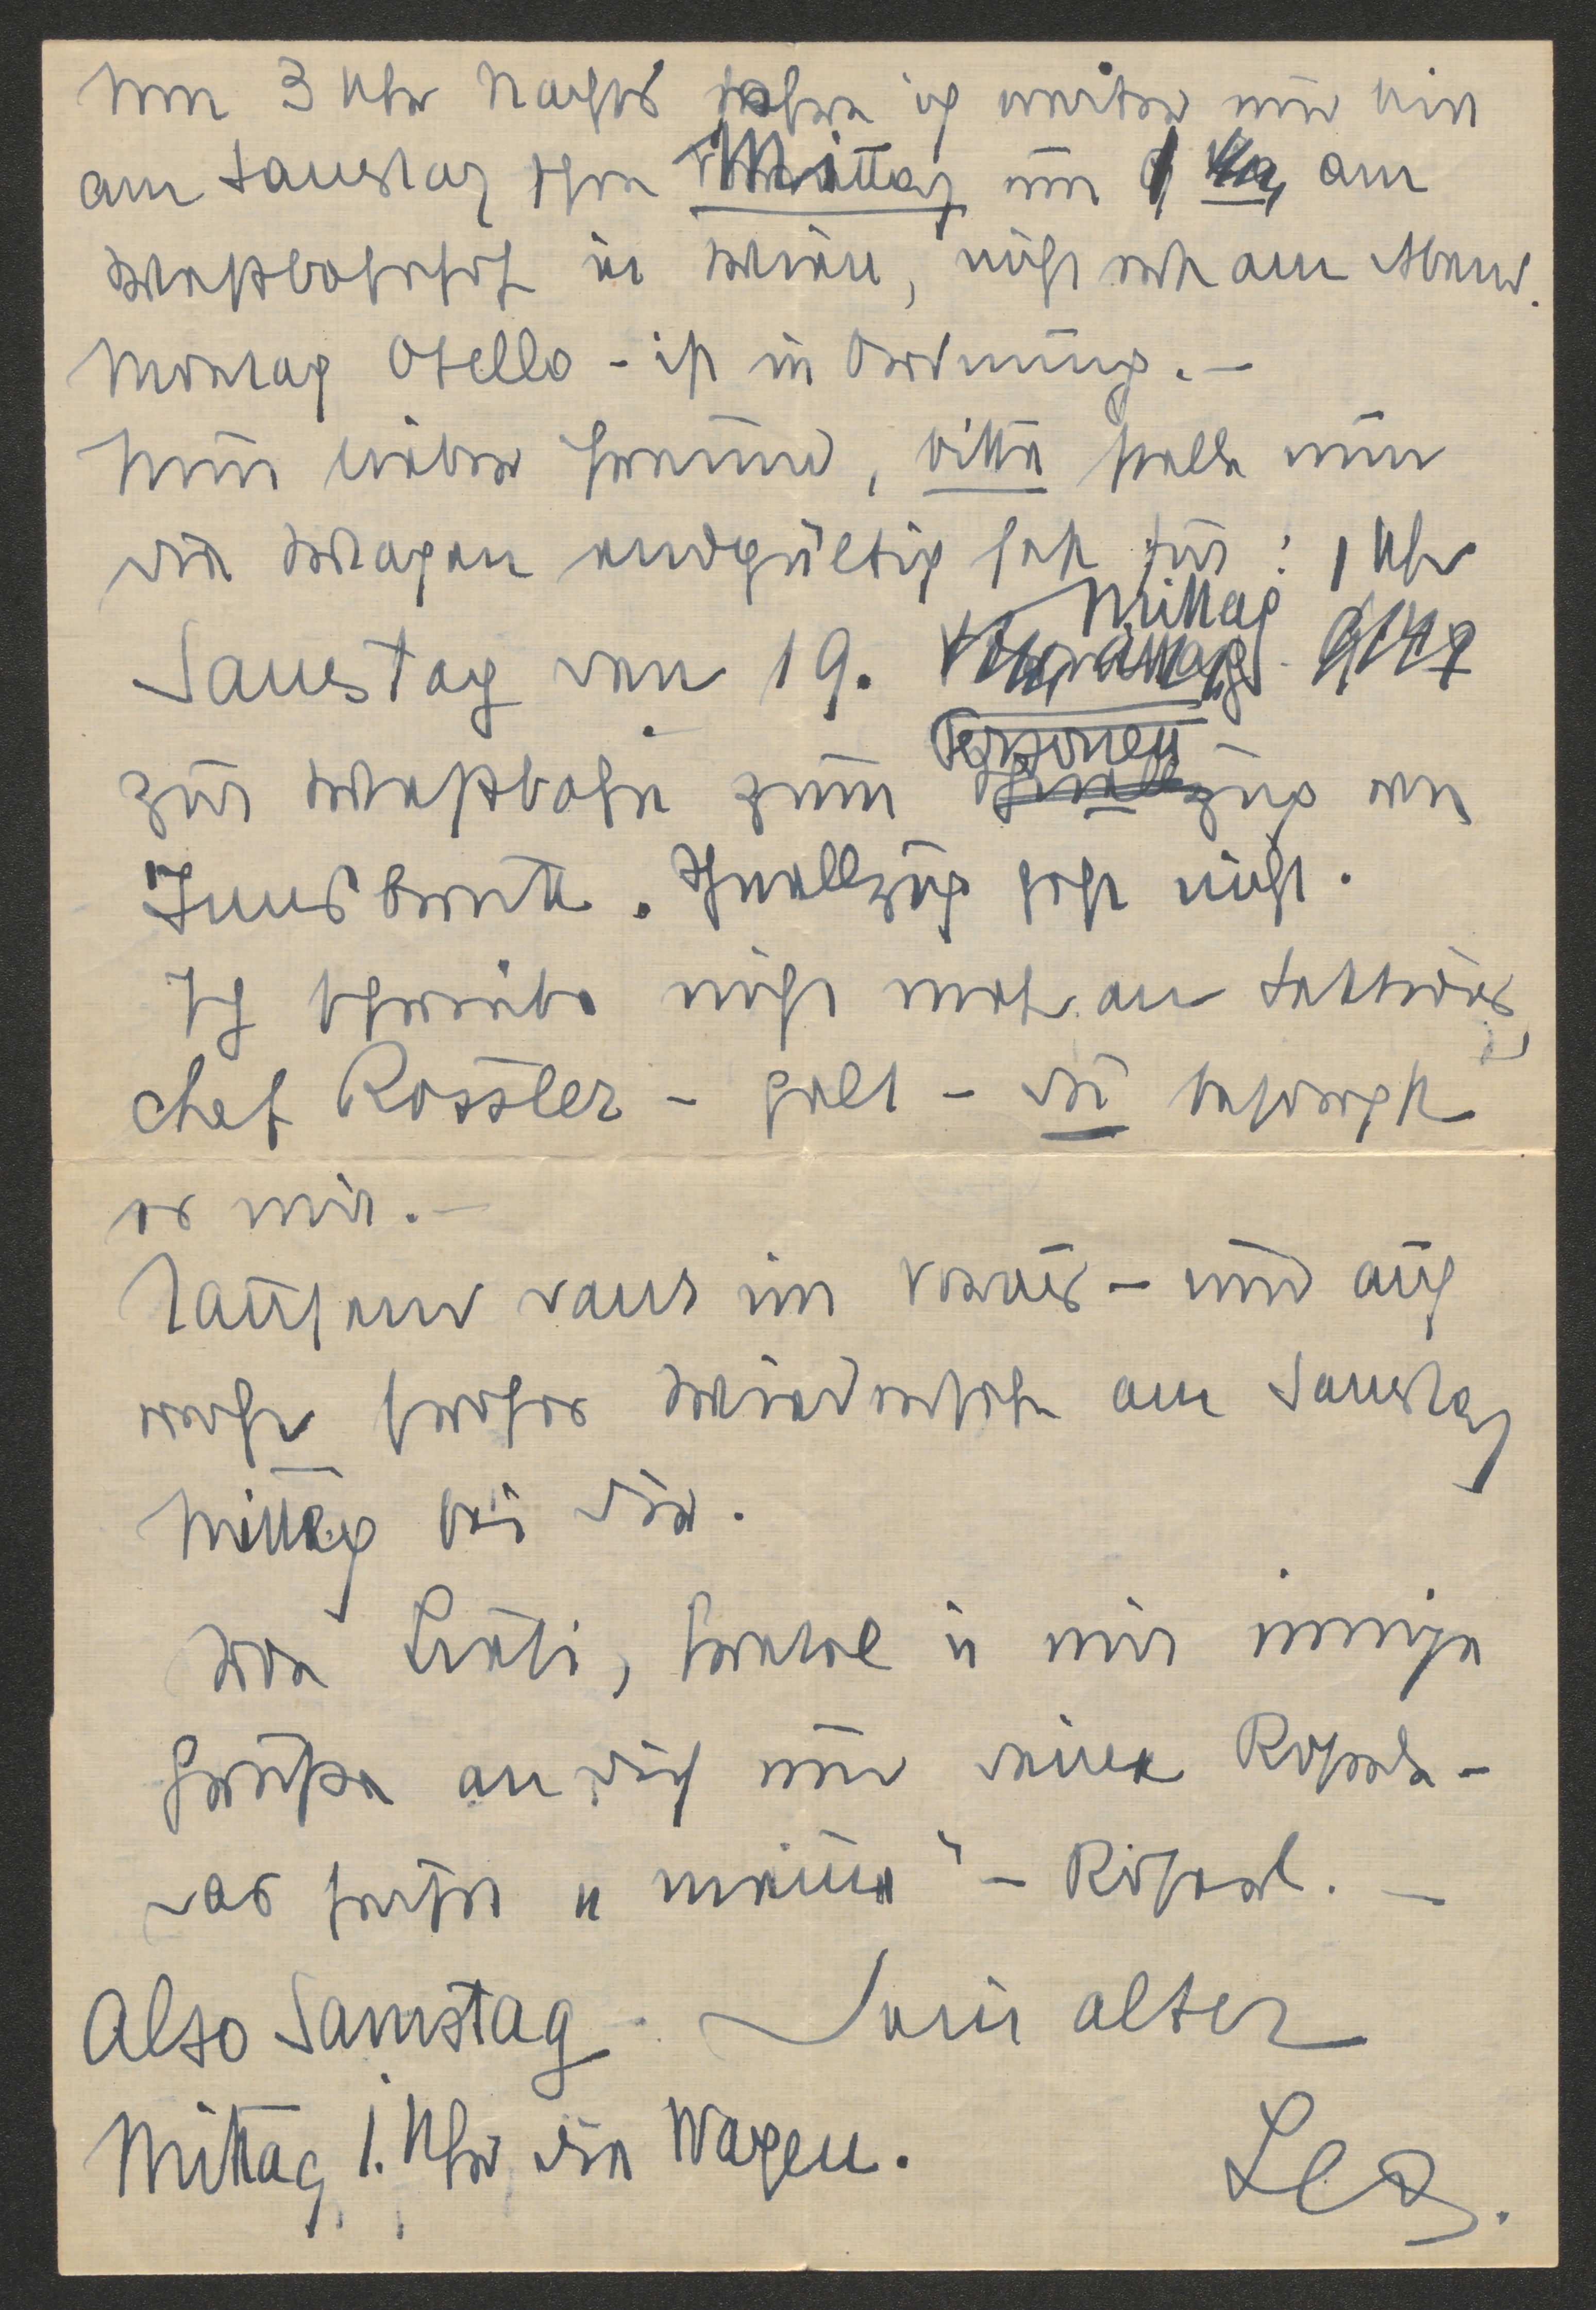 Um 3 Uhr Nachts fahre ich weiter und bin
am Samstag schon Mittag um 1 Uhr am
Westbahnhof in Wien, nicht erst am Abend.
Montag Otello - ist in Ordnung. -
Nun lieber Freund, bitte stelle nun
die Wagen endgültig fest für: 1 Uhr
Mittag
Samstag den 19.
Personen
zur Westbahn zum zug von
Innsbruck. Schnellzug geht nicht.
Ich schreibe nicht mehr an Sektions
chef Rossler - gelt - Du besorgst
es mir. -
Tausend Dank im voraus - und auf
recht frohes Wiedersehen am Samstag
Mittag bei Dir.
Von Liesl, Gretel u mir innige
Grüße an Dich und Deine Roserl -
das heißt „meine" - Roserl. -
Also Samstag Dein alter
Mittag 1. Uhr die Wagen.
Leo.